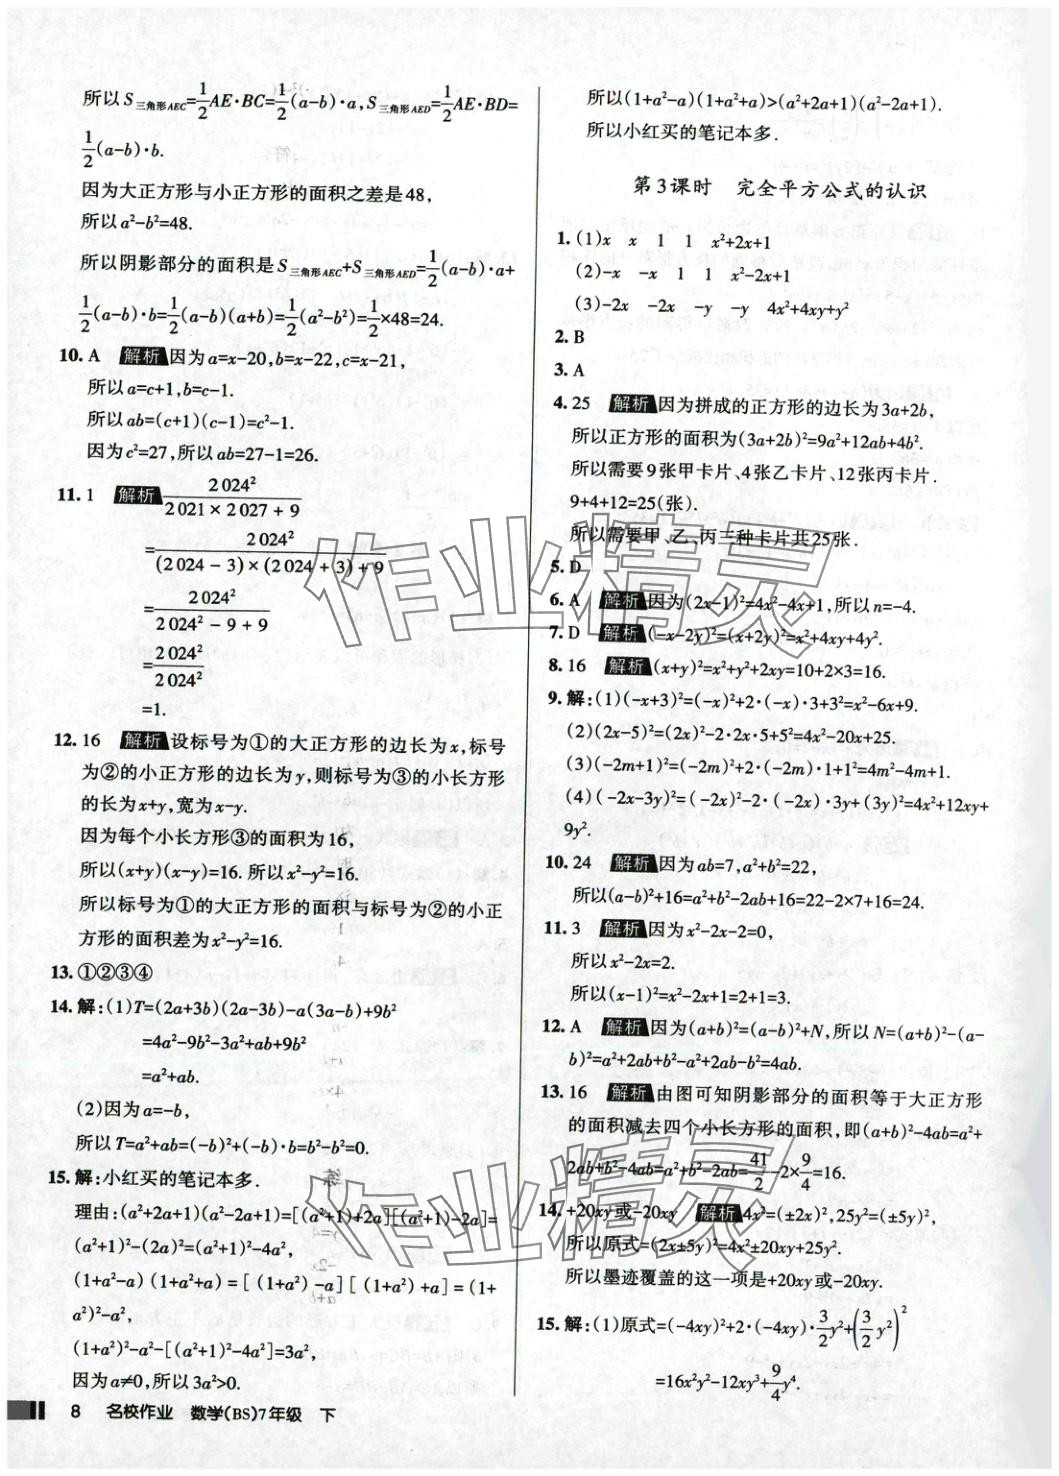 所以S三角形AEC=1/2AE·BC=1/2(a-b)·a,S三角形AED=1/2AE·BD=
1/2(a-b)·b.
因为大正方形与小正方形的面积之差是48,
所以a²-b²=48.
所以阴影部分的面积是S三角形AEC+S三角形AED=1/2(a-b)·a+
1/2(a-b)·b=1/2(a-b)(a+b)=1/2(a²-b²)=1/2×48=24.
10. A 解析 因为a=x-20,b=x-22,c=x-21,
所以a=c+1,b=c-1.
所以ab=(c+1)(c-1)=c²-1.
因为c²=27,所以ab=27-1=26.
11. 1 解析 2024²/(2021×2027+9)
=2024²/((2024-3)×(2024+3)+9)
=2024²/(2024²-9+9)
=2024²/2024²
=1.
12. 16 解析 设标号为①的大正方形的边长为x,标号
为②的小正方形的边长为y,则标号为③的小长方形
的长为x+y,宽为x-y.
因为每个小长方形③的面积为16,
所以(x+y)(x-y)=16. 所以x²-y²=16.
所以标号为①的大正方形的面积与标号为②的小正
方形的面积差为x²-y²=16.
13. ①②③④
14. 解:(1)T=(2a+3b)(2a-3b)-a(3a-b)+9b²
=4a²-9b²-3a²+ab+9b²
=a²+ab.
(2)因为a=-b,
所以T=a²+ab=(-b)²+(-b)·b=b²-b²=0.
15. 解:小红买的笔记本多.
理由:(a²+2a+1)(a²-2a+1)=[(a²+1)+2a][(a²+1)-2a]=
(a²+1)²-(2a)²=(a²+1)²-4a²,
(1+a²-a)(1+a²+a)=[(1+a²)-a][(1+a²)+a]=(1+
a²)²-a²,
(1+a²)²-a²-[(a²+1)²-4a²]=3a²,
因为a≠0,所以3a²>0.
8 名校作业 数学(BS)7年级 下
所以(1+a²-a)(1+a²+a)>(a²+2a+1)(a²-2a+1).
所以小红买的笔记本多.
第3课时 完全平方公式的认识
1. (1)x x 1 1 x²+2x+1
(2)-x -x 1 1 x²-2x+1
(3)-2x -2x -y -y 4x²+4xy+y²
2. B
3. A
4. 25 解析 因为拼成的正方形的边长为3a+2b,
所以正方形的面积为(3a+2b)²=9a²+12ab+4b².
所以需要9张甲卡片、4张乙卡片、12张丙卡片.
9+4+12=25(张).
所以需要甲、乙、丙三种卡片共25张.
5. D
6. A 解析 因为(2x-1)²=4x²-4x+1,所以n=-4.
7. D 解析 (-x-2y)²=(x+2y)²=x²+4xy+4y².
8. 16 解析 (x+y)²=x²+y²+2xy=10+2×3=16.
9. 解:(1)(-x+3)²=(-x)²+2·(-x)·3+3²=x²-6x+9.
(2)(2x-5)²=(2x)²-2·2x·5+5²=4x²-20x+25.
(3)(-2m+1)²=(-2m)²+2·(-2m)·1+1²=4m²-4m+1.
(4)(-2x-3y)²=(-2x)²-2·(-2x)·3y+(3y)²=4x²+12xy+
9y².
10. 24 解析 因为ab=7,a²+b²=22,
所以(a-b)²+16=a²+b²-2ab+16=22-2×7+16=24.
11. 3 解析 因为x²-2x-2=0,
所以x²-2x=2.
所以(x-1)²=x²-2x+1=2+1=3.
12. A 解析 因为(a+b)²=(a-b)²+N,所以N=(a+b)²-(a-
b)²=a²+2ab+b²-a²+2ab-b²=4ab.
13. 16 解析 由图可知阴影部分的面积等于大正方形
的面积减去四个小长方形的面积,即(a+b)²-4ab=a²+
2ab+b²-4ab=a²+b²-2ab=41/2-2×9/4=16.
14. +20xy或-20xy 解析 4x²=(±2x)²,25y²=(±5y)²,
所以原式=(2x±5y)²=4x²±20xy+25y².
所以墨迹覆盖的这一项是+20xy或-20xy.
15. 解:(1)原式=(-4xy)²+2·(-4xy)·3/2y²+(3/2y²)²
=16x²y²-12xy³+9/4y⁴.
作业精灵
作业精灵